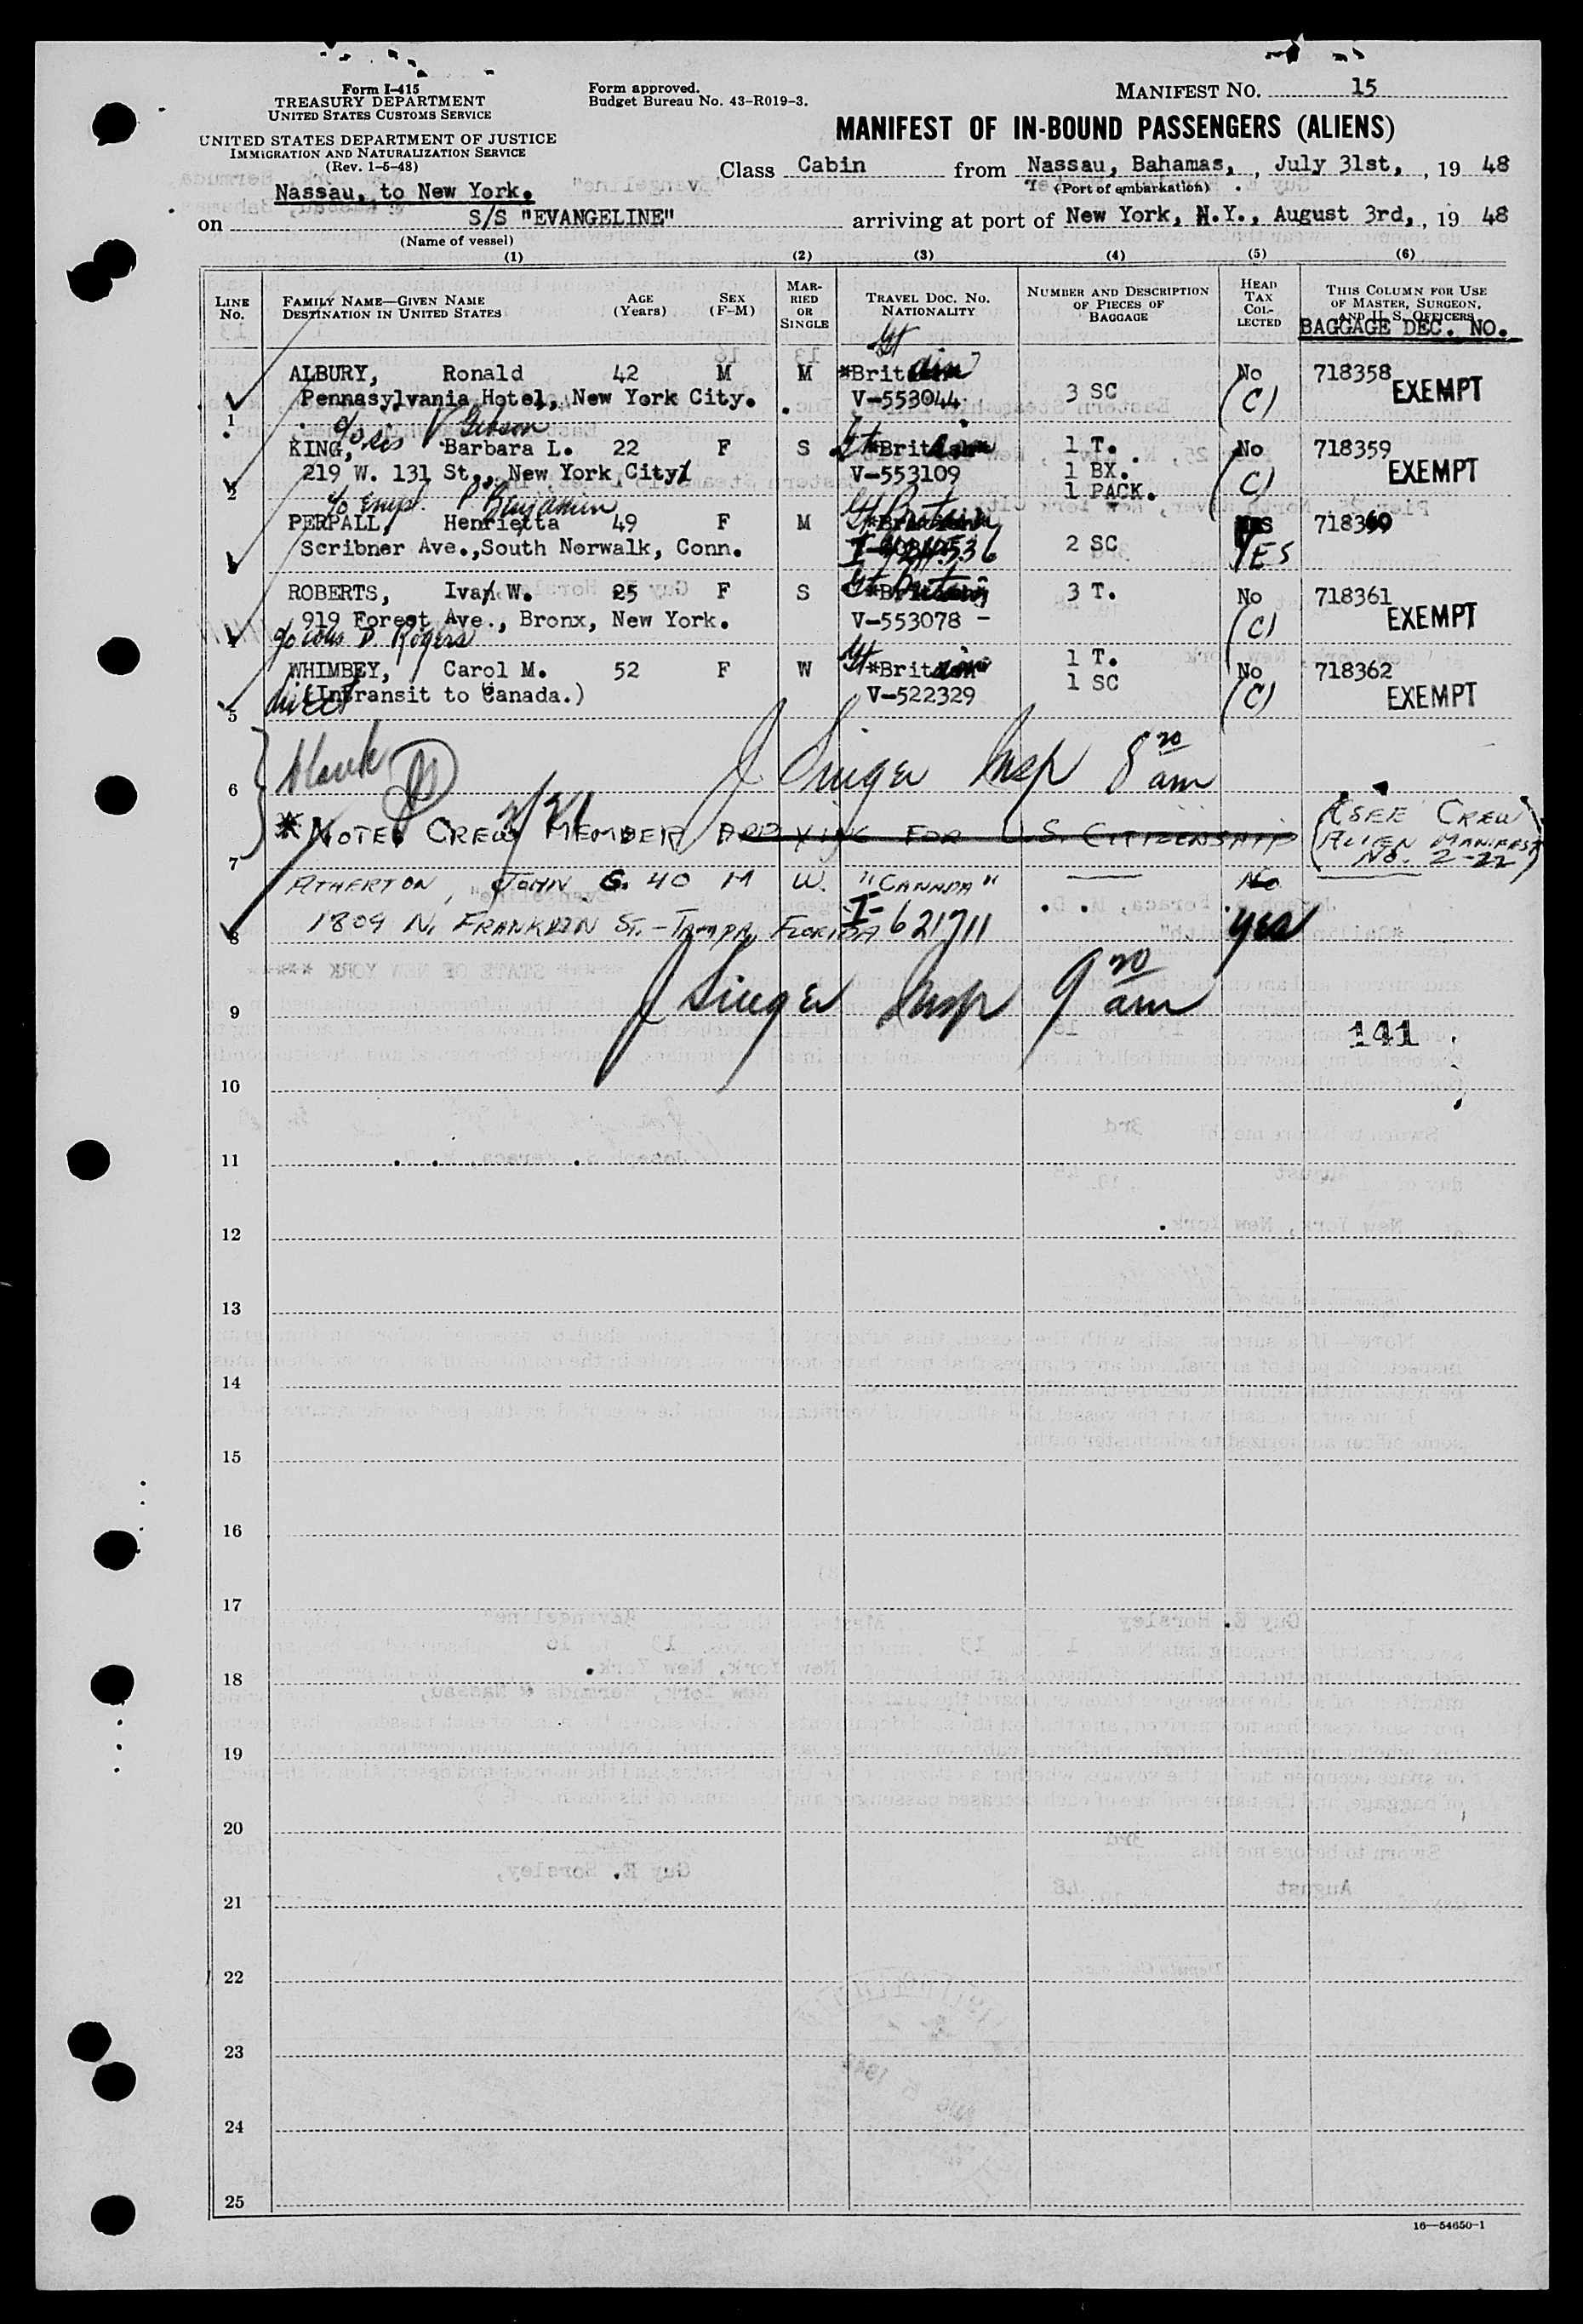 Form I-415
TREASURY DEPARTMENT
UNITED STATES CUSTOMS SERVICE
UNITED STATES DEPARTMENT OF JUSTICE
IMMIGRATION AND NATURALIZATION SERVICE
(Rev. 1-5-48)
Form approved.
Budget Bureau No. 43-R019-3.
MANIFEST NO. 15
MANIFEST OF IN-BOUND PASSENGERS (ALIENS)
Class Cabin from Nassau, Bahamas, , July 31st, , 19 48
(Port of embarkation)
Nassau, to New York.
on S/S "EVANGELINE" arriving at port of New York, N.Y., August 3rd, , 19 48
(Name of vessel)
(1) (2) (3) (4) (5) (6)
LINE No.
FAMILY NAME—GIVEN NAME
DESTINATION IN UNITED STATES
AGE (Years)
SEX (F-M)
MARRIED OR SINGLE
TRAVEL DOC. NO.
NATIONALITY
NUMBER AND DESCRIPTION OF PIECES OF BAGGAGE
HEAD TAX COLLECTED
THIS COLUMN FOR USE OF MASTER, SURGEON, AND U. S. OFFICERS
BAGGAGE DEC. NO.
Gt
ALBURY, Ronald 42 M M *Britain No 718358
1 Pennasylvania Hotel, New York City. V-553044 3 SC (C) EXEMPT
c/o sis V Gibson
KING, Barbara L. 22 F S Gt *Britain 1 T. No 718359
2 219 W. 131 St., New York City V-553109 1 BX. (C) EXEMPT
1 PACK.
c/o Empl. P. Benjamin Gt Britain
PERPALL, Henrietta 49 F M 718360
Scribner Ave., South Norwalk, Conn. 2 SC YES
ROBERTS, Ivan W. 25 F S Gt Britain 3 T. No 718361
919 Forest Ave., Bronx, New York. V-553078 - (C) EXEMPT
c/o D. Rogers
WHIMBEY, Carol M. 52 F W Gt *Britain 1 T. No 718362
5 direct (Intransit to Canada.) V-522329 1 SC (C) EXEMPT
6 blank J Singer Insp 8 30 am
7 *NOTE, CREW MEMBER APPLYING FOR U.S. CITIZENSHIP (SEE CREW ALIEN MANIFEST NO. 2-22)
ATHERTON, JOHN G. 40 M W. "CANADA" No
8 1809 N. FRANKLIN ST. - TAMPA, FLORIDA I-621711 yes
9 J Singer Insp 9 30 am
141
10
11
12
13
14
15
16
17
18
19
20
21
22
23
24
25
16—54650-1